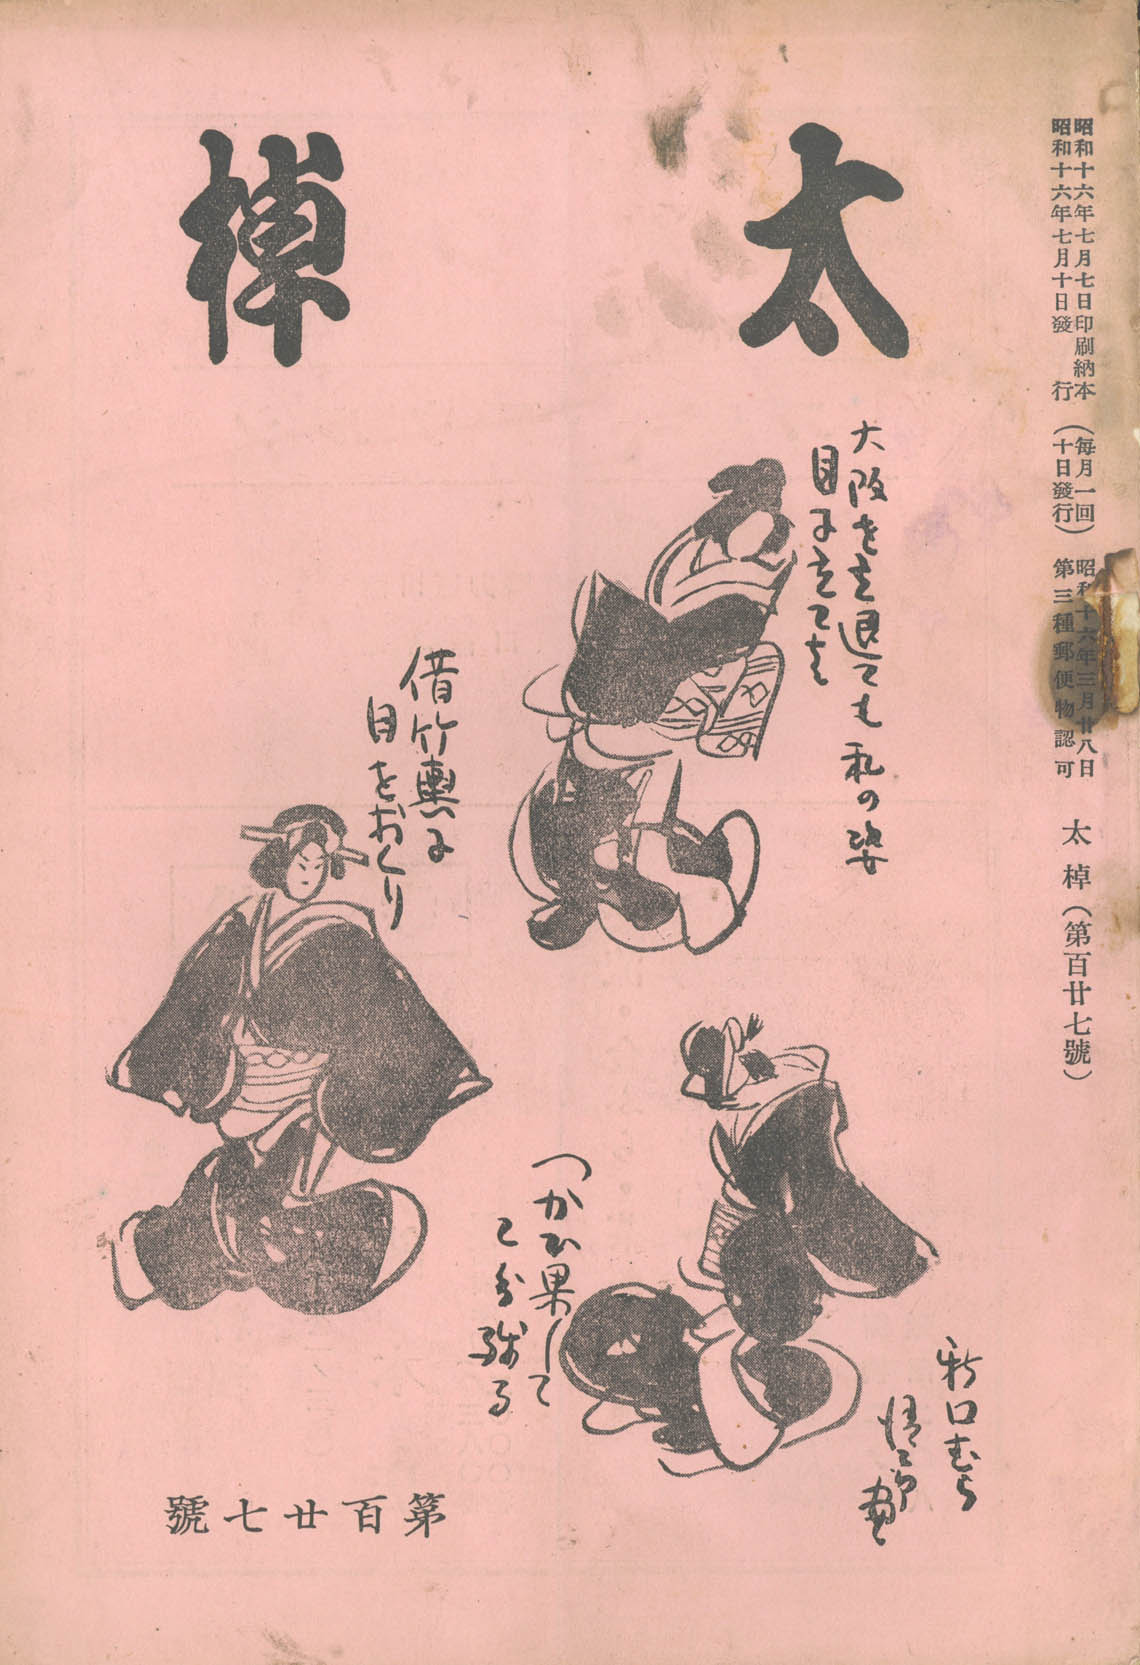 太棹
昭和十六年七月七日印刷納本
昭和十六年七月十日發行
(毎月一回)
(十日發行)
昭和十六年三月廿八日
第三種郵便物認可
太棹(第百廿七號)
大阪を立退ても私の姿
目に立てば
借竹輿に
目をおくり
つかひ果して
二分殘る
新口むら
画
第百廿七號